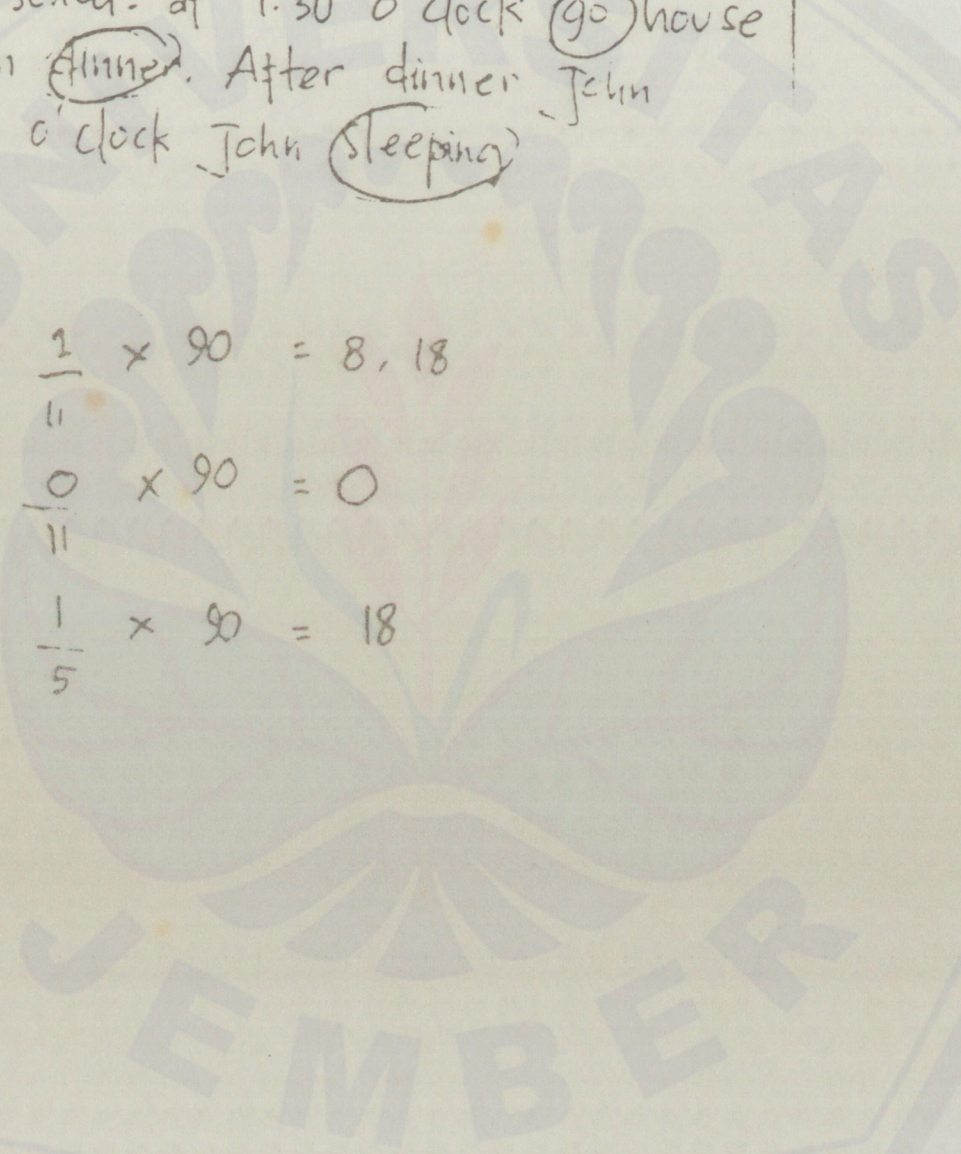 at 1.30 o'clock go house
dinner. After dinner John
o'clock John sleeping
1/11 × 90 = 8,18
0/11 × 90 = 0
1/5 × 90 = 18
UNIVERSITAS
JEMBER